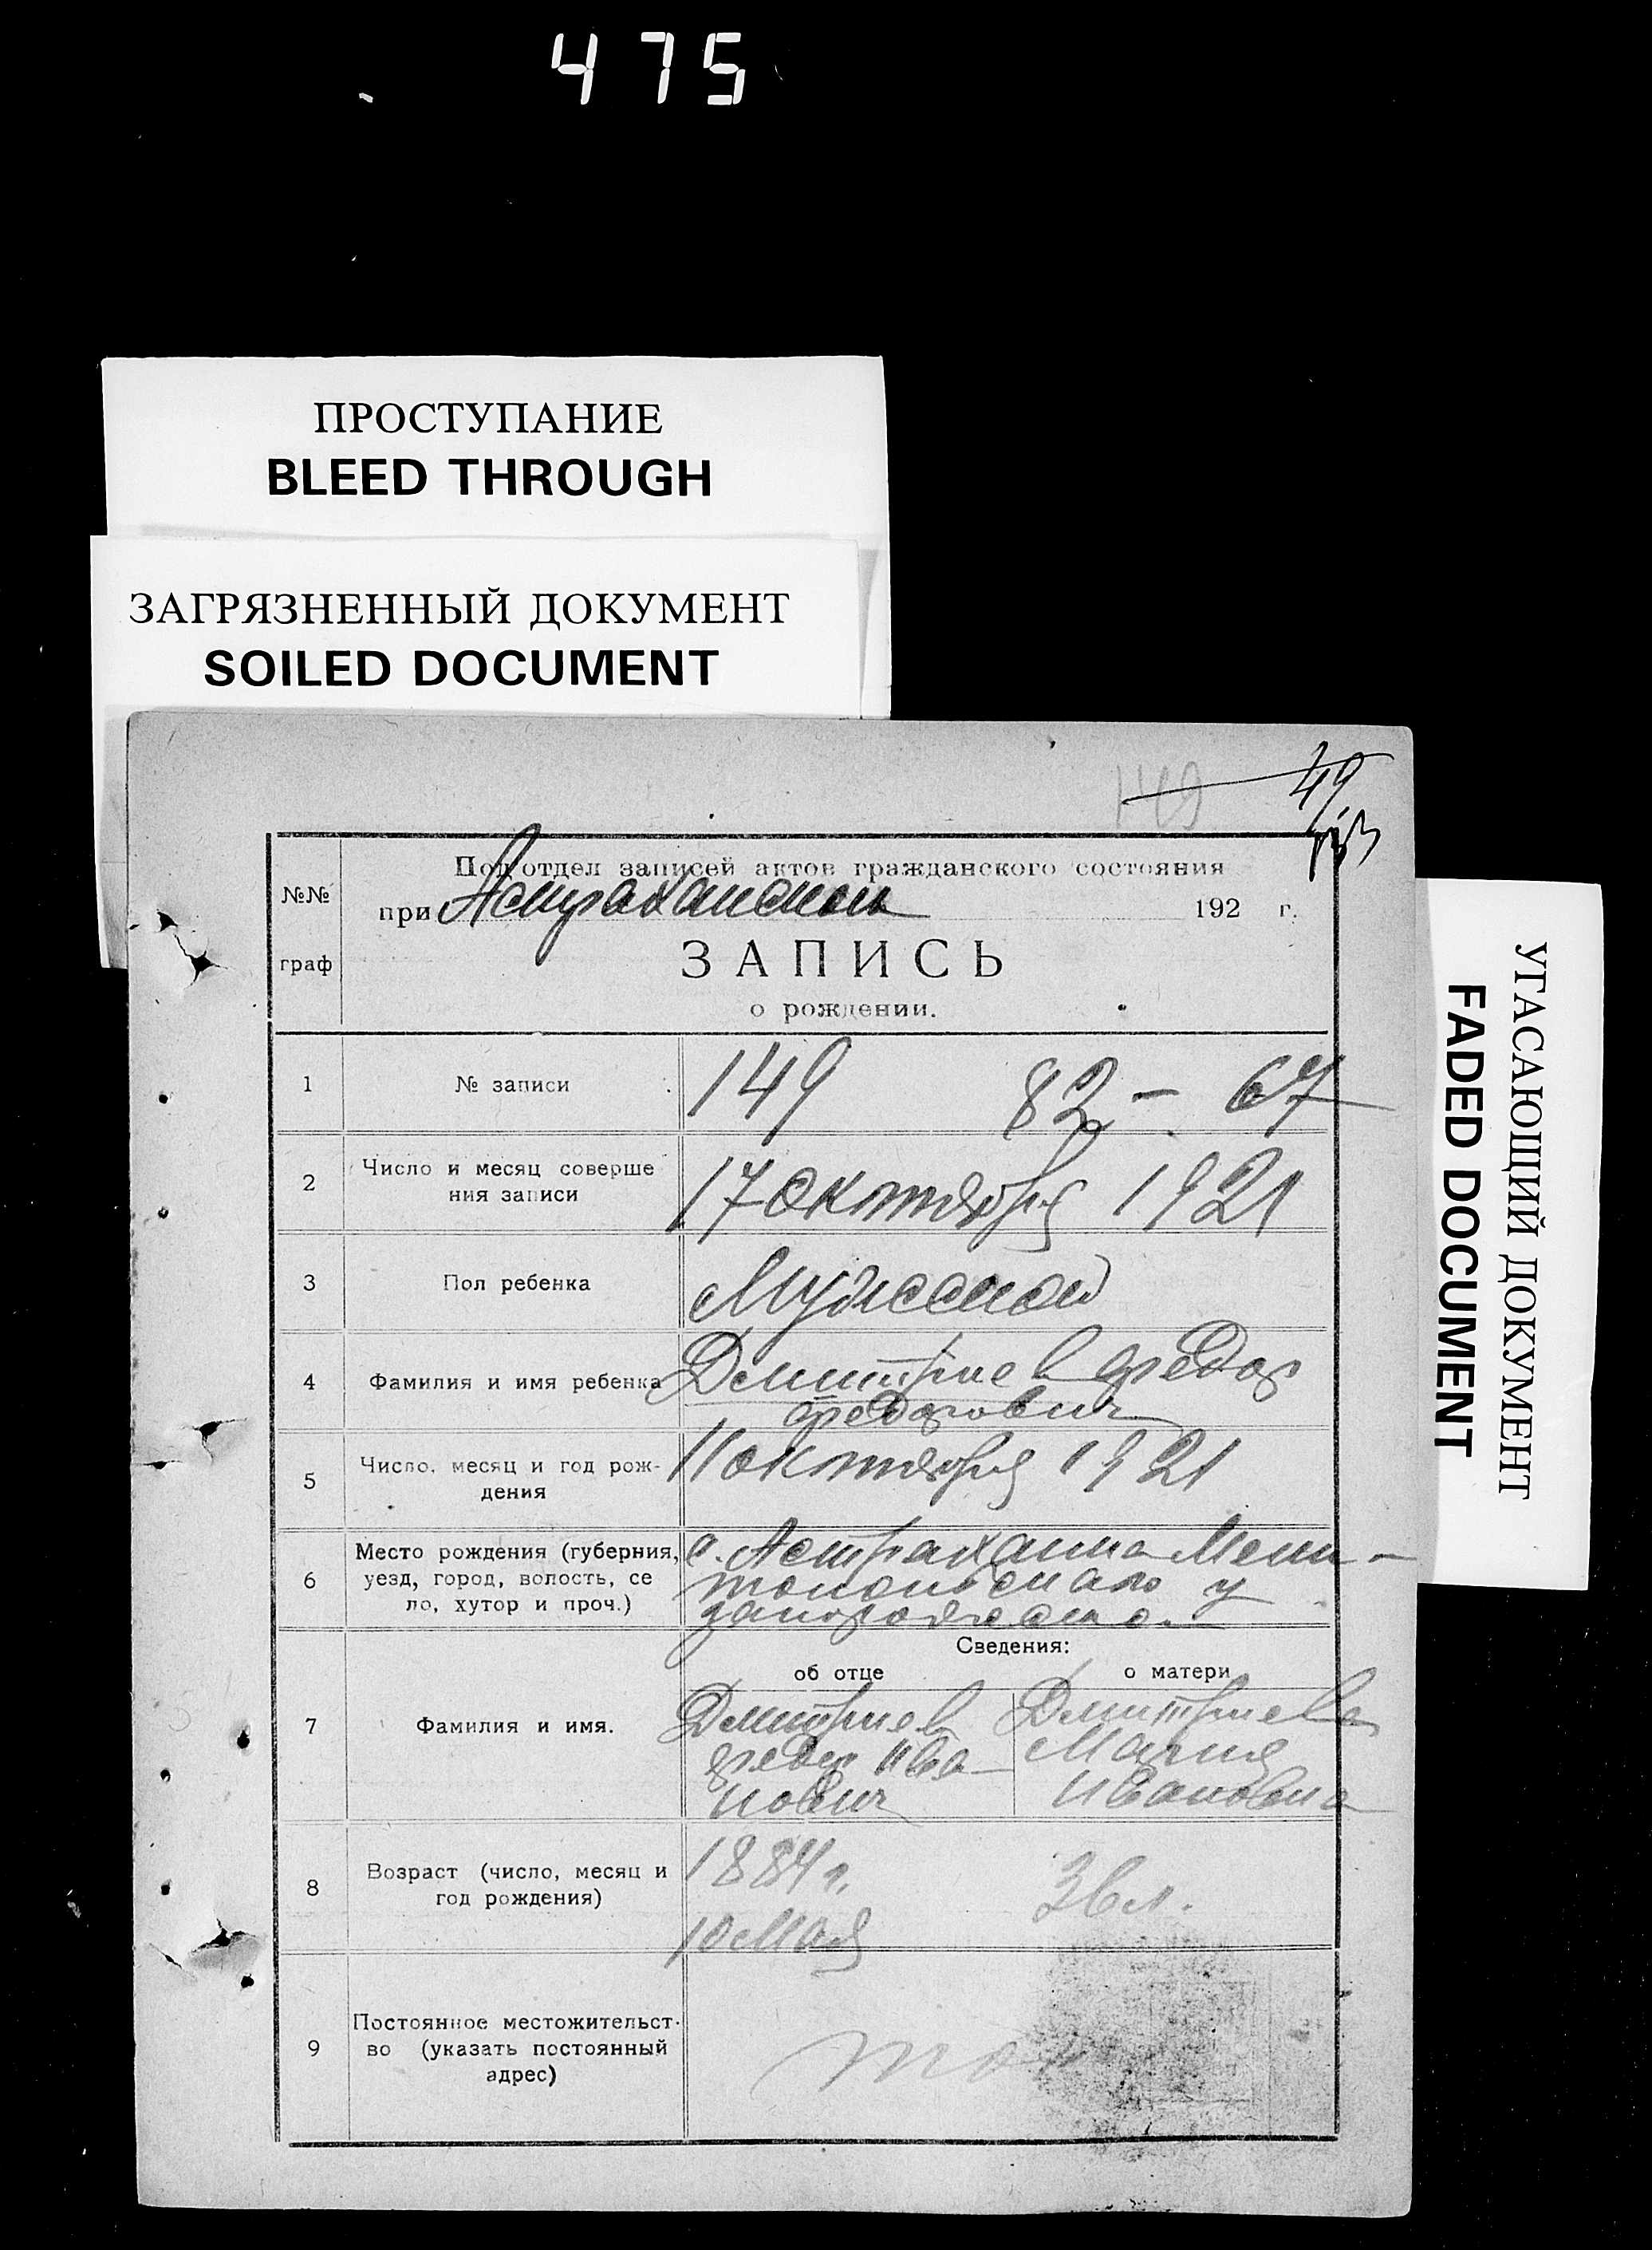 475
ПРОСТУПАНИЕ
BLEED THROUGH
ЗАГРЯЗНЕННЫЙ ДОКУМЕНТ
SOILED DOCUMENT
149
49
УГАСАЮЩИЙ ДОКУМЕНТ
FADED DOCUMENT
№№
граф
Подотдел записей актов гражданского состояния
при Астраханском 192 г.
ЗАПИСЬ
о рождении.
1 № записи 149 82 - 67
2 Число и месяц соверше
ния записи 17 октября 1921
3 Пол ребенка Мужской
4 Фамилия и имя ребенка Дмитриев Федор
Федорович
5 Число, месяц и год рож-
дения 11 октября 1921
6 Место рождения (губерния,
уезд, город, волость, се
ло, хутор и проч.)
с. Астраханка Мели-
топольскаго у
Сведения:
об отце о матери
7 Фамилия и имя.
Дмитриев Дмитриева
Федор Ива Мария
нович Ивановна
8 Возраст (число, месяц и
год рождения)
1884 г. 36 л.
10 Мая
9 Постоянное местожительст-
во (указать постоянный
адрес)